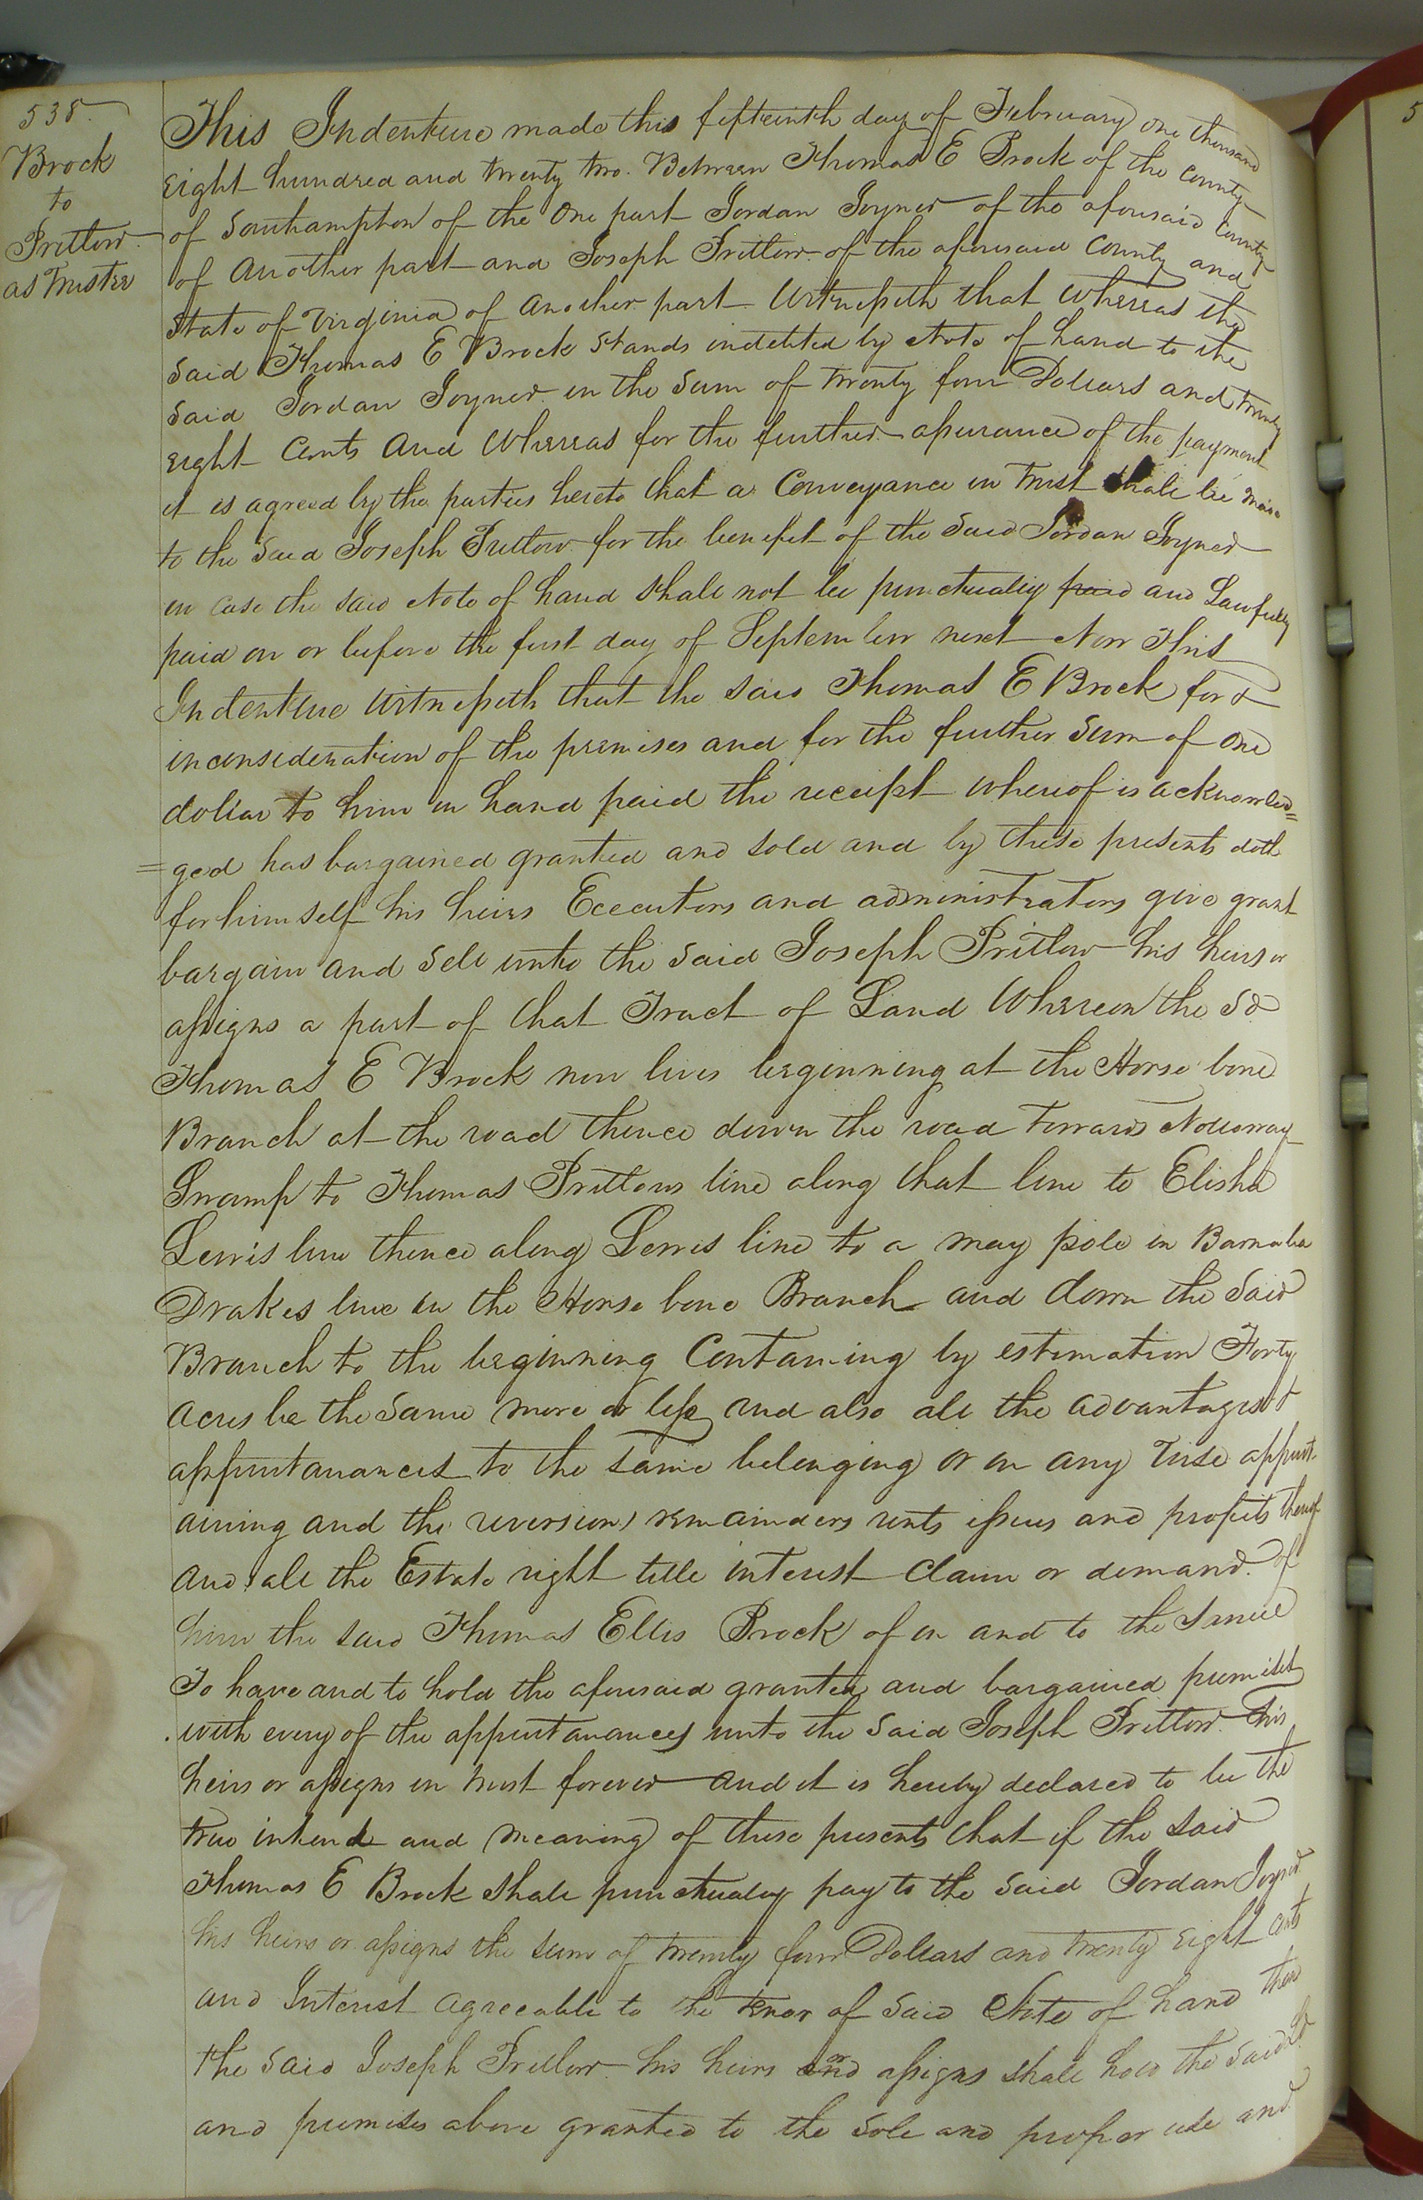 538
Brock
to
Pretlow
as Trustee
This Indenture made this fifteenth day of February one thousand
Eight hundred and twenty two. Between Thomas E Brock of the County
of Southampton of the one part Jordan Joyner of the aforesaid County
of another part and Joseph Pretlow of the aforesaid County and
State of Virginia of another part Witnesseth that Whereas the
said Thomas E Brock stands indebted by Note of hand to the
said Jordan Joyner in the sum of twenty four Dollars and twenty
eight Cents And Whereas for the further assurance of the payment
it is agreed by the parties hereto that a Conveyance in Trust shall be made
to the said Joseph Pretlow for the benefit of the said Jordan Joyner
in case the said Note of hand shall not be punctually paid and Lawfully
paid on or before the first day of September next Now This
Indenture Witnesseth that the said Thomas E Brock for &
inconsideration of the premises and for the further sum of one
dollar to him in hand paid the receipt whereof is acknowled=
=ged has bargained granted and sold and by these presents doth
for himself his heirs Executors and administrators give grant
bargain and sell unto the said Joseph Pretlow his heirs or
assigns a part of that Tract of Land Whereon the sd
Thomas E Brock now lives beginning at the Horse bone
Branch at the road thence down the road towards Nottoway
Swamp to Thomas Pretlows line along that line to Elisha
Lewis line thence along Lewis line to a may pole in Barnaba
Drakes line in the Horse bone Branch and down the said
Branch to the beginning Containing by estimation Forty
acres be the same more or less and also all the advantages &
appurtanances to the same belonging or in any wise appurt-
aining and the reversions remainders rents issues and profits thereof
and all the Estate right title interest claim or demand of
him the said Thomas Ellis Brock of in and to the same
To have and to hold the aforesaid granted and bargained premises
with every of the appurtanances unto the said Joseph Pretlow his
heirs or assigns in trust forever and it is hereby declared to be the
true intend and meaning of these presents that if the said
Thomas E Brock shall punctualy pay to the said Jordan Joyner
his heirs or assigns the sum of twenty four Dollars and twenty eight cents
and Interest agreeable to the tenor of said Note of hand then
the said Joseph Pretlow his heirs or assigns shall hold the said Ld
and premises above granted to the sole and proper use and